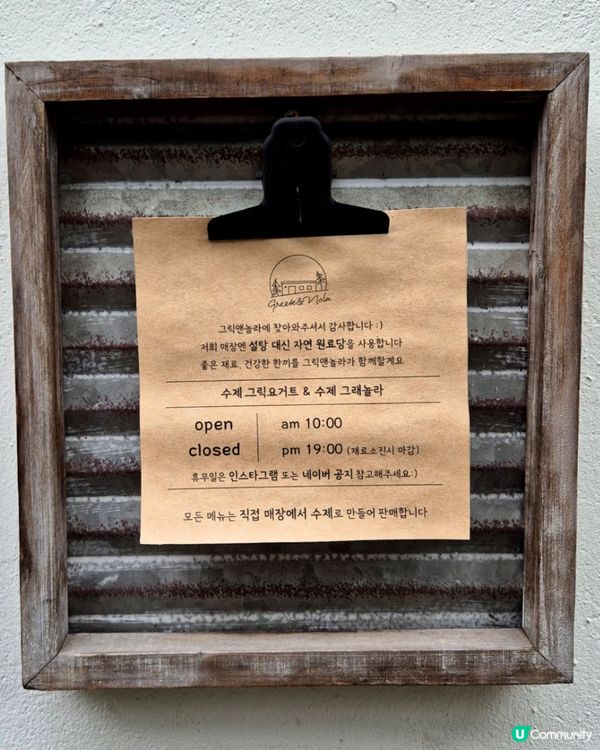 Greek&Nola
그릭앤놀라에 찾아와주셔서 감사합니다 :)
저희 매장엔 설탕 대신 자연 원료당을 사용합니다
좋은 재료, 건강한 한끼를 그릭앤놀라가 함께할게요
수제 그릭요거트 & 수제 그래놀라
open am 10:00
closed pm 19:00 (재료소진시 마감)
휴무일은 인스타그램 또는 네이버 공지 참고해주세요:)
모든 메뉴는 직접 매장에서 수제로 만들어 판매합니다
U Community